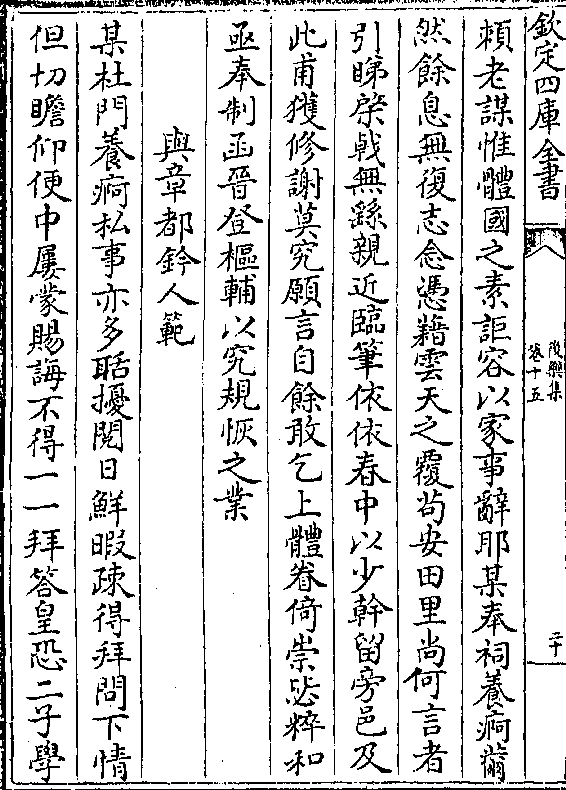 欽定四庫全書
後樂集
卷十五
二十
賴老謀惟體國之素詎容以家事辭耶某奉祠養痾薾
然餘息無復志念憑藉雲天之覆茍安田里尚何言者
引睇棨戟無繇親近臨筆依依春中以少幹留旁邑及
此甫獲修謝莫究願言自餘敢乞上體眷倚崇毖粹和
亟奉制函晉登樞輔以究規恢之業
與章都鈐人範
某杜門養痾私事亦多聒擾閱日鮮暇疎得拜問下情
但切瞻仰便中屢蒙賜誨不得一一拜答皇恐二子學